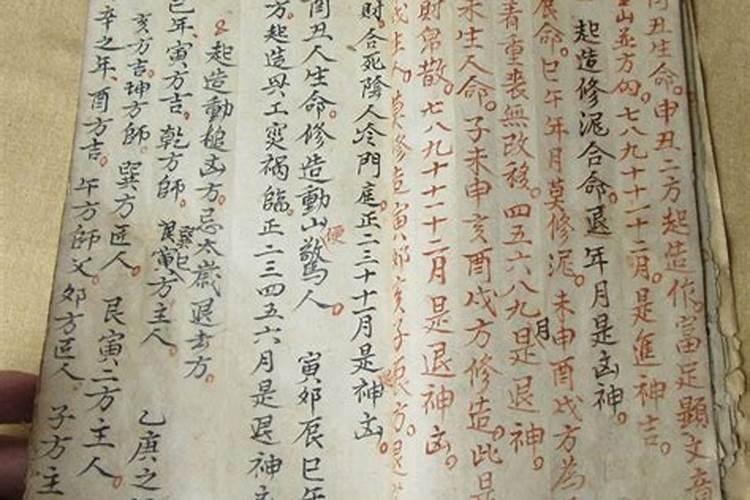 酉丑生命。申丑二方起造作。富足顯文章
山並方向。七八九十十一十二月。是進神吉。
起造修泥合命。退年月是凶神。
辰命。巳午年月莫修泥。未申酉戌方為
看重喪無改移。四五六八九月是退神。
未生人命。子未申亥酉戌方修造。此是
財帛散。七八九十十一十二月是退神凶。
生人。莫修造寅卯亥子
財。合死陰人冷門庭。正二三十十一月是神凶。
酉丑人生命。修造動山便驚人。寅卯辰巳午
方起造興工突禍臨。正二三四五六月是退神
起造動搥凶方。忌太歲退方。
巳年寅方吉。乾方師。巽巳艮寅方主人。乙庚之
亥方吉。坤方師。巽方匠人。艮寅二方主人。
辛之年酉方吉。午方師父。卯方匠人。子方主